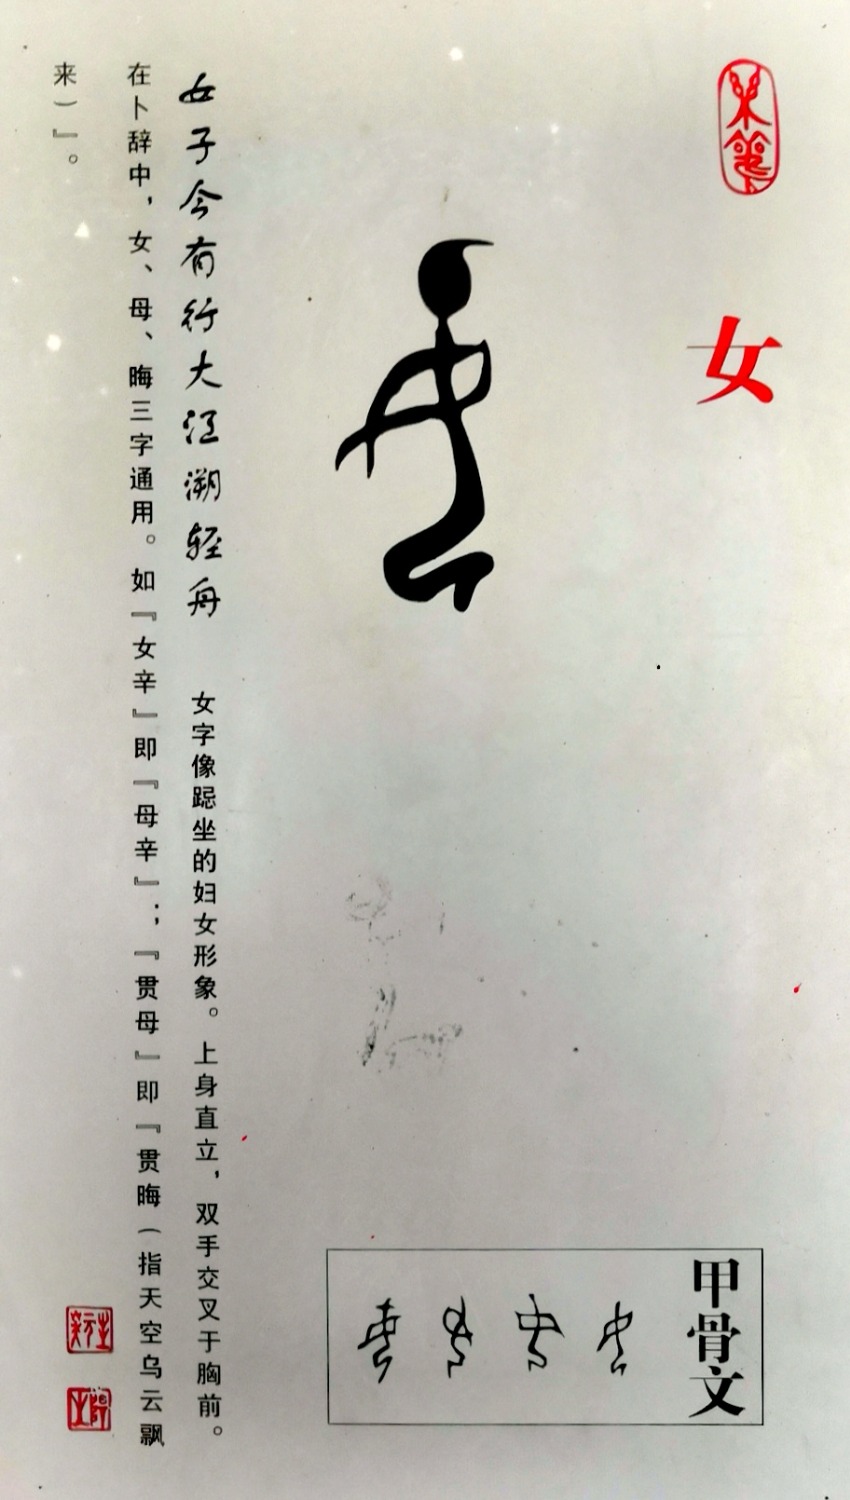 女
女子今有行大江溯轻舟 女字像跽坐的妇女形象。上身直立，双手交叉于胸前。
在卜辞中，女、母、晦三字通用。如『女辛』即『母辛』；『贯母』即『贯晦（指天空乌云飘
来）』。
甲骨文